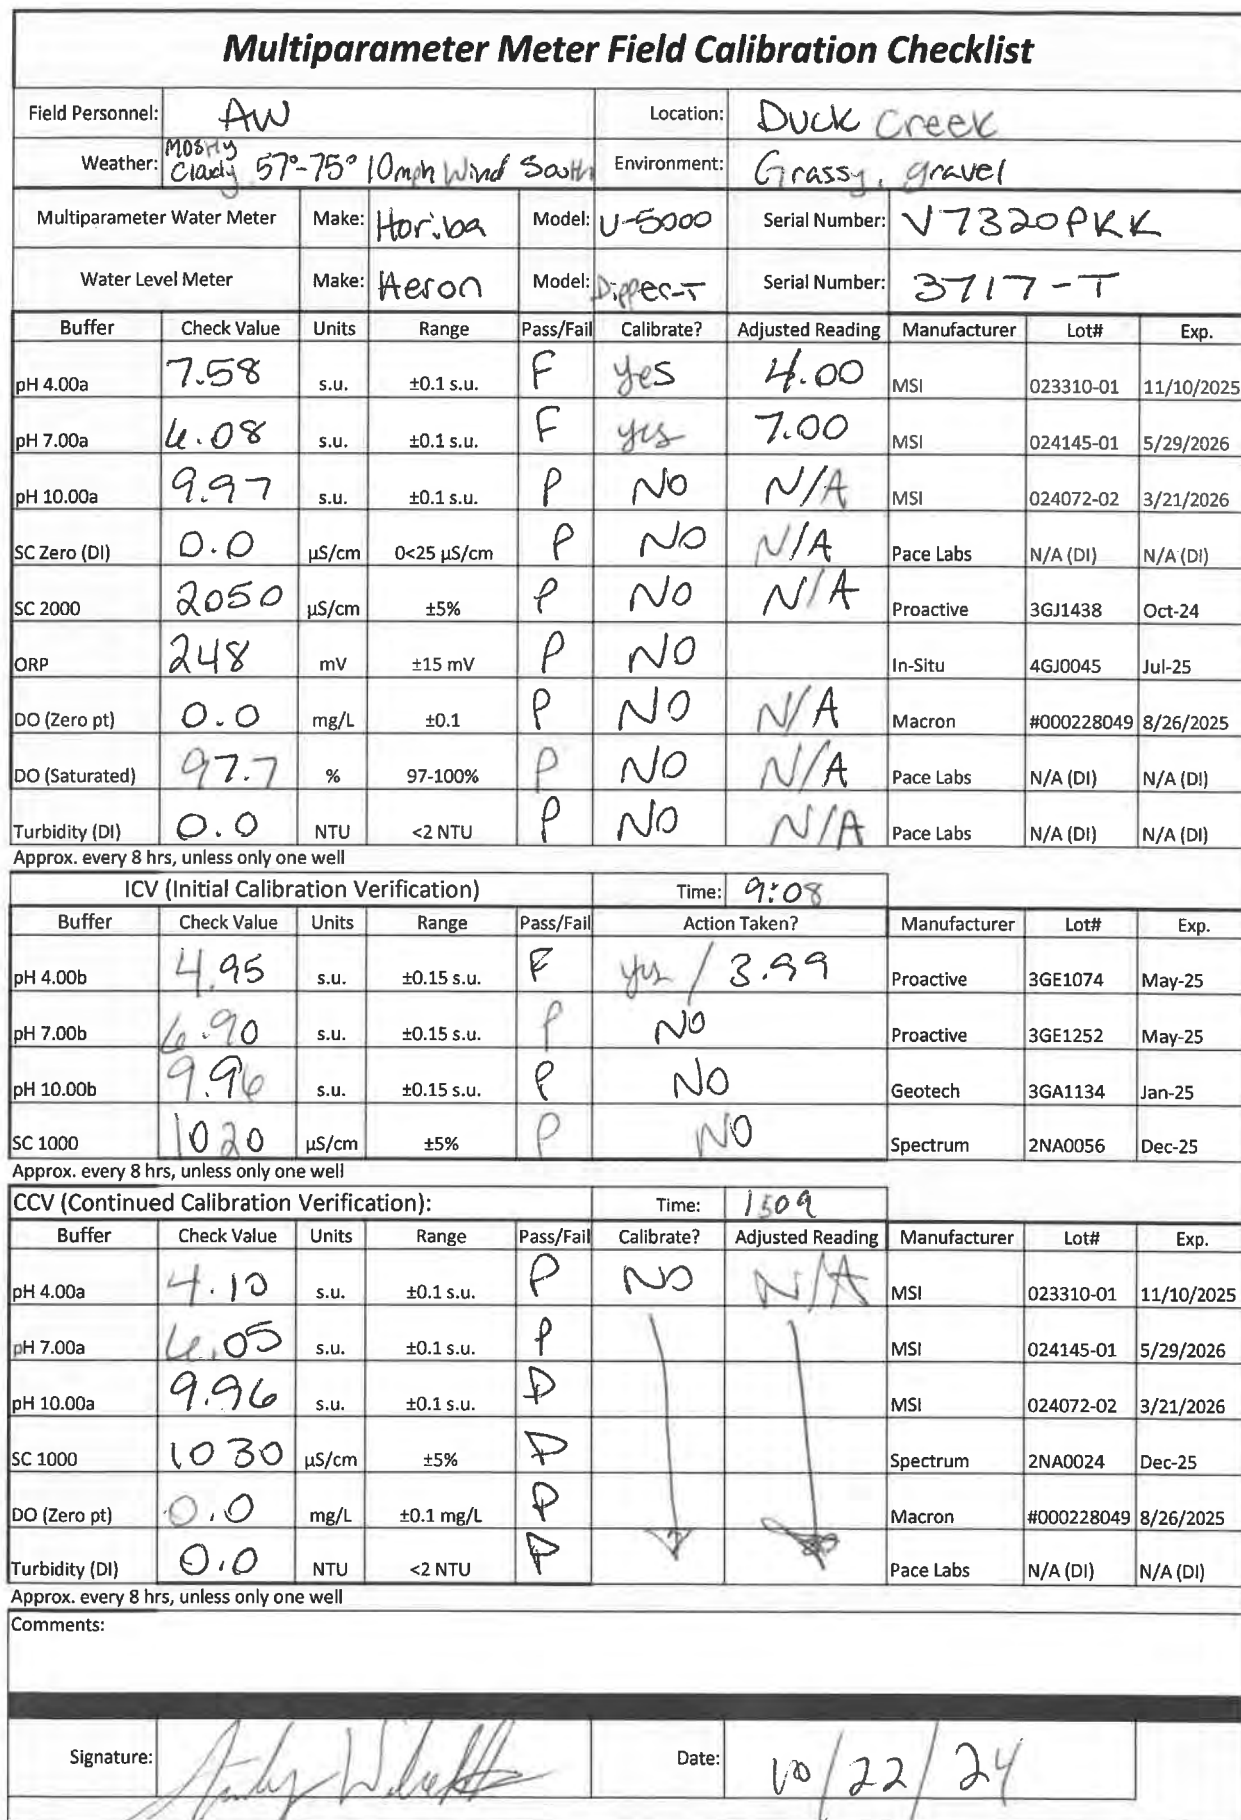 Multiparameter Meter Field Calibration Checklist
Field Personnel: AW Location: Duck Creek
Weather: Mostly Cloudy 57°-75° 10mph Wind South Environment: Grassy, gravel
Multiparameter Water Meter Make: Horiba Model: U-5000 Serial Number: V7320PKK
Water Level Meter Make: Heron Model: Dipper-T Serial Number: 3717-T
Buffer Check Value Units Range Pass/Fail Calibrate? Adjusted Reading Manufacturer Lot# Exp.
pH 4.00a 7.58 s.u. ±0.1 s.u. F yes 4.00 MSI 023310-01 11/10/2025
pH 7.00a 6.08 s.u. ±0.1 s.u. F yes 7.00 MSI 024145-01 5/29/2026
pH 10.00a 9.97 s.u. ±0.1 s.u. P NO N/A MSI 024072-02 3/21/2026
SC Zero (DI) 0.0 µS/cm 0<25 µS/cm P NO N/A Pace Labs N/A (DI) N/A (DI)
SC 2000 2050 µS/cm ±5% P NO N/A Proactive 3GJ1438 Oct-24
ORP 248 mV ±15 mV P NO In-Situ 4GJ0045 Jul-25
DO (Zero pt) 0.0 mg/L ±0.1 P NO N/A Macron #000228049 8/26/2025
DO (Saturated) 97.7 % 97-100% P NO N/A Pace Labs N/A (DI) N/A (DI)
Turbidity (DI) 0.0 NTU <2 NTU P NO N/A Pace Labs N/A (DI) N/A (DI)
Approx. every 8 hrs, unless only one well
ICV (Initial Calibration Verification) Time: 9:08
Buffer Check Value Units Range Pass/Fail Action Taken? Manufacturer Lot# Exp.
pH 4.00b 4.95 s.u. ±0.15 s.u. F yes / 3.99 Proactive 3GE1074 May-25
pH 7.00b 6.90 s.u. ±0.15 s.u. P NO Proactive 3GE1252 May-25
pH 10.00b 9.96 s.u. ±0.15 s.u. P NO Geotech 3GA1134 Jan-25
SC 1000 1020 µS/cm ±5% P NO Spectrum 2NA0056 Dec-25
Approx. every 8 hrs, unless only one well
CCV (Continued Calibration Verification): Time: 1509
Buffer Check Value Units Range Pass/Fail Calibrate? Adjusted Reading Manufacturer Lot# Exp.
pH 4.00a 4.10 s.u. ±0.1 s.u. P NO N/A MSI 023310-01 11/10/2025
pH 7.00a 6.05 s.u. ±0.1 s.u. P MSI 024145-01 5/29/2026
pH 10.00a 9.96 s.u. ±0.1 s.u. P MSI 024072-02 3/21/2026
SC 1000 1030 µS/cm ±5% P Spectrum 2NA0024 Dec-25
DO (Zero pt) 0.0 mg/L ±0.1 mg/L P Macron #000228049 8/26/2025
Turbidity (DI) 0.0 NTU <2 NTU P Pace Labs N/A (DI) N/A (DI)
Approx. every 8 hrs, unless only one well
Comments:
Signature: Date: 10/22/24